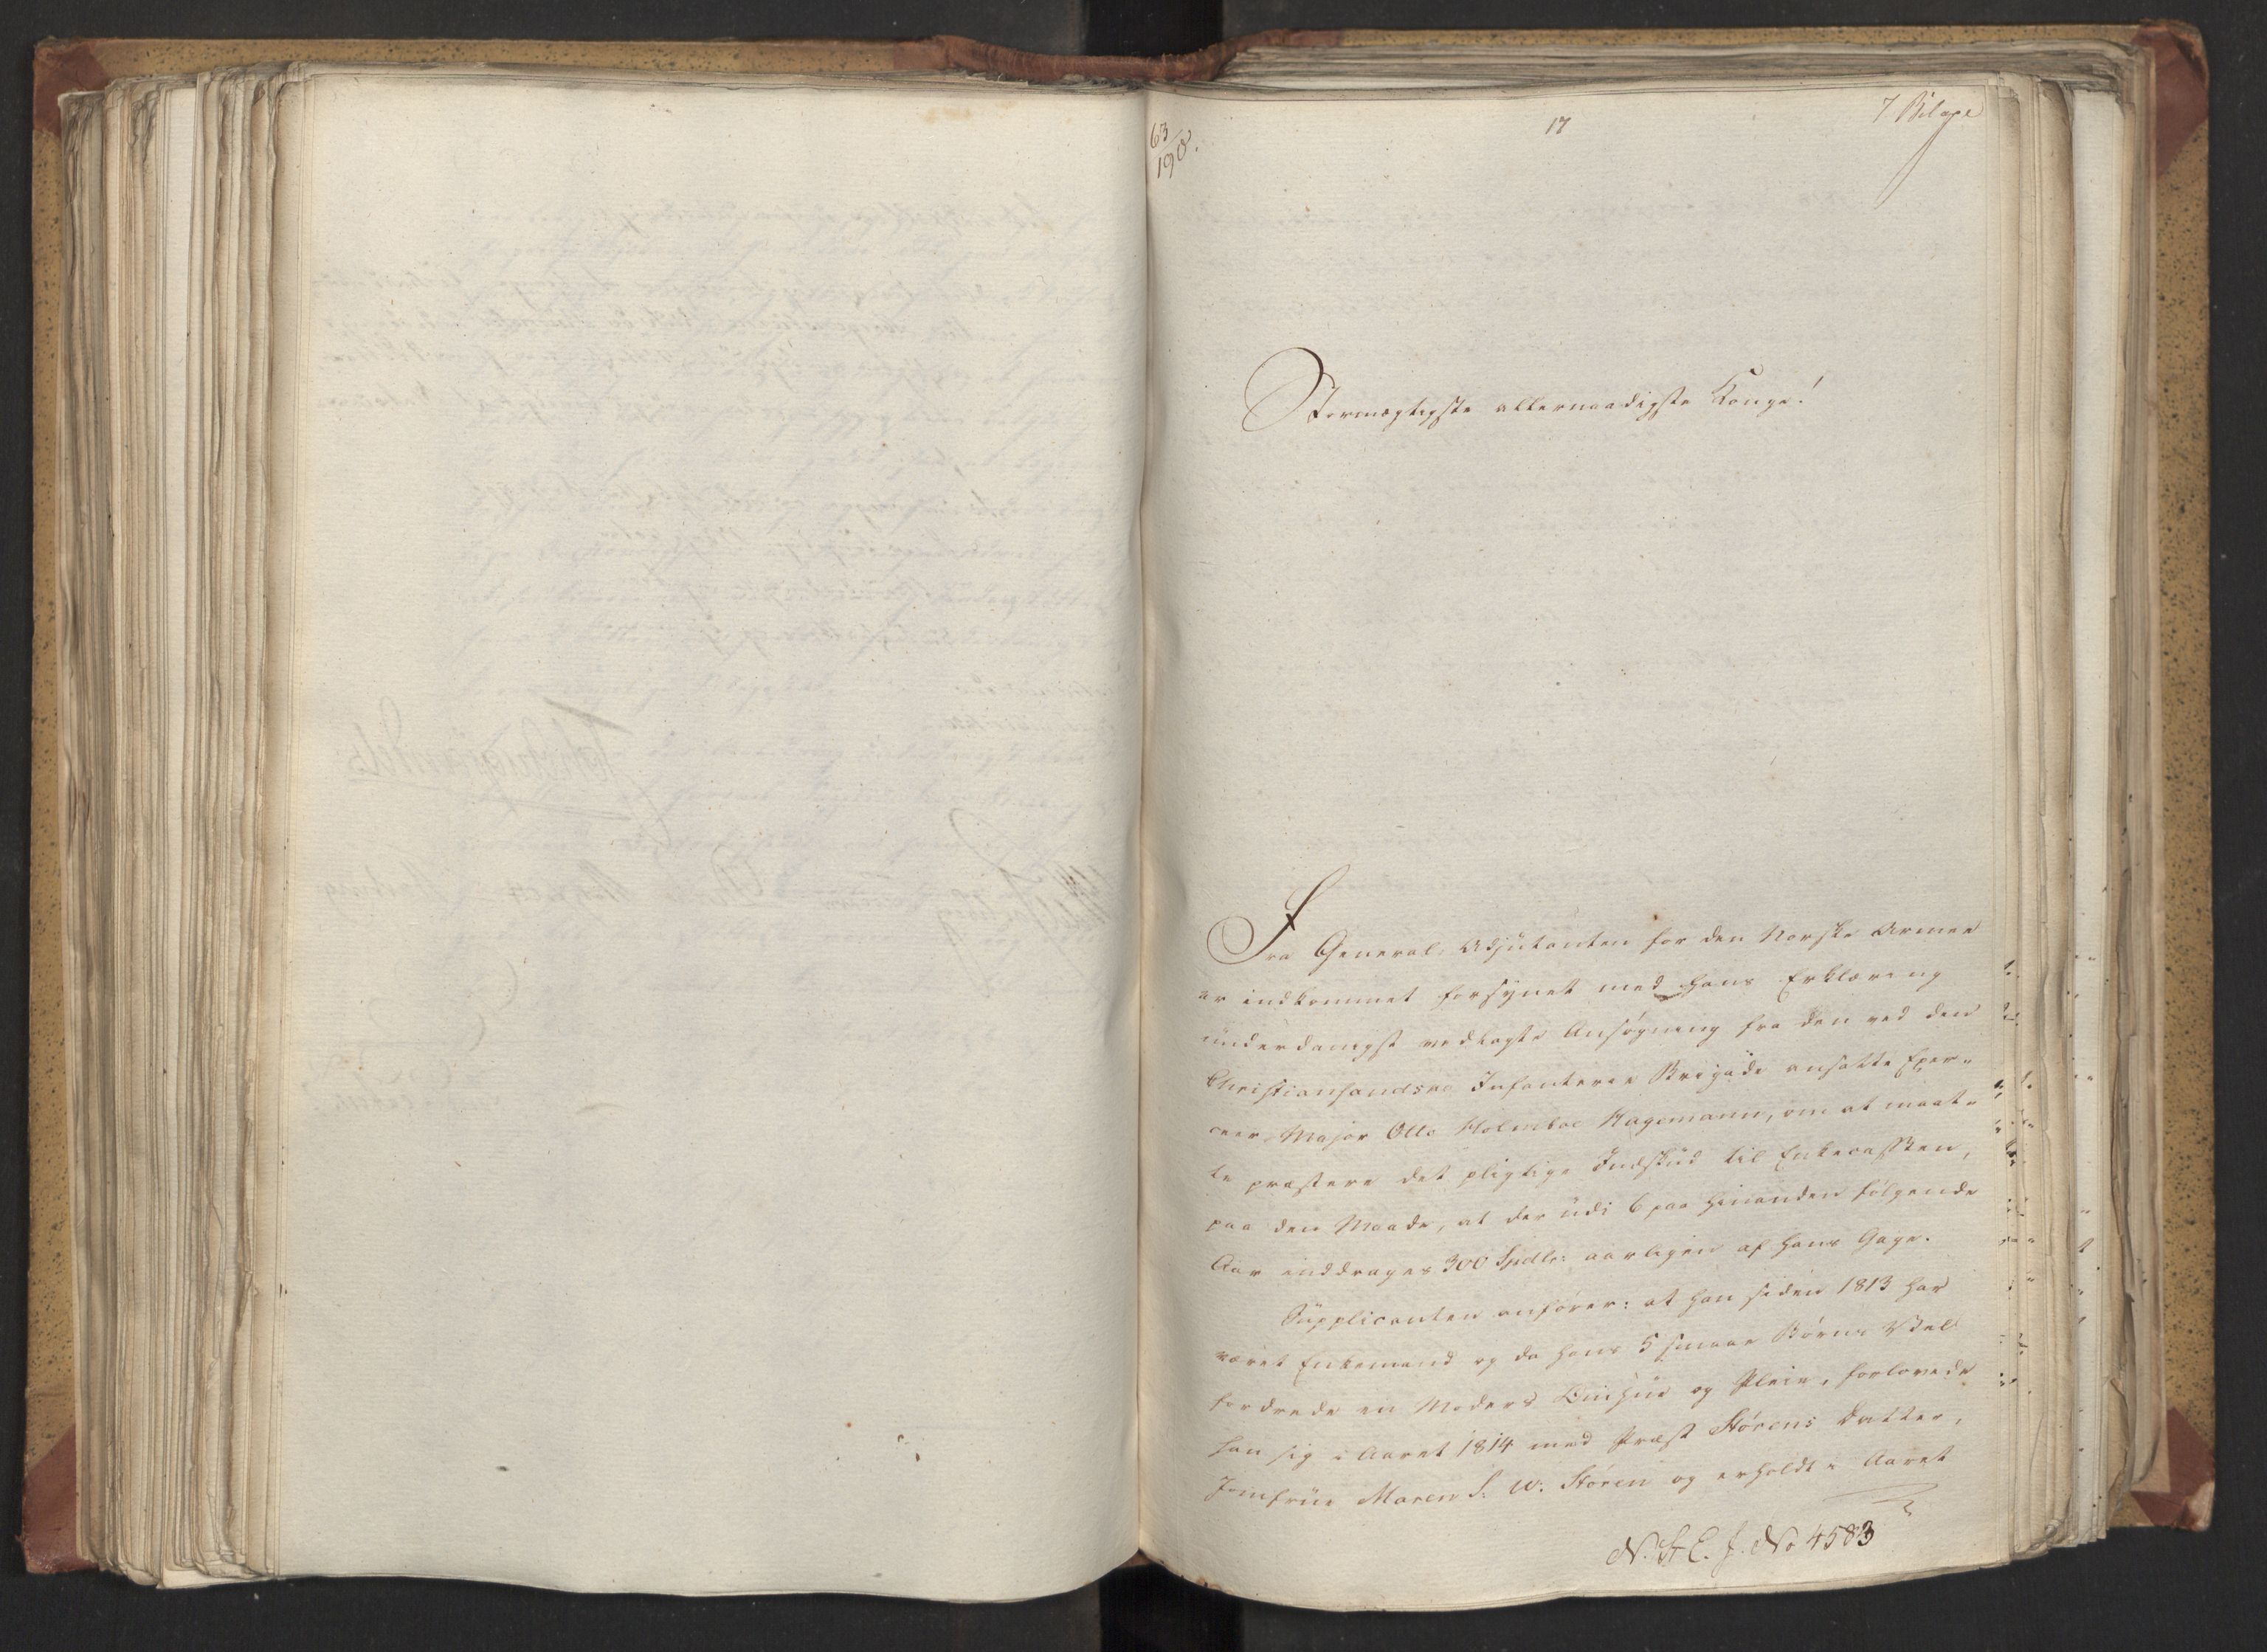 63/190.
17
7 Bilage
Stormægtigste allernaadigste Konge!
Fra General-Adjutanten for den Norske Armee
er indkommet forsynet med hans Erklæring
underdanigst vedlagte Ansøgning fra den ved den
Christiansandske Infanterie Brigade ansatte Exer-
ceer-Major Otto Holmboe Hagemann, om at maat-
te præstere det pligtige Indskud til Enkecassen,
paa den Maade, at der udi 6 paa hinanden følgende
Aar inddrages 300 Spdlr: aarligen af hans Gage.
Supplicanten anfører: at han siden 1813 har
været Enkemand og da hans 5 smaae Børns Vel
fordrede en Moders Omhue og Pleie, forlovede
han sig i Aaret 1814 med Præst Størens Datter,
Jomfrue Maren S. W. Støren og erholdt i Aaret
N. St. E. J. No 4583